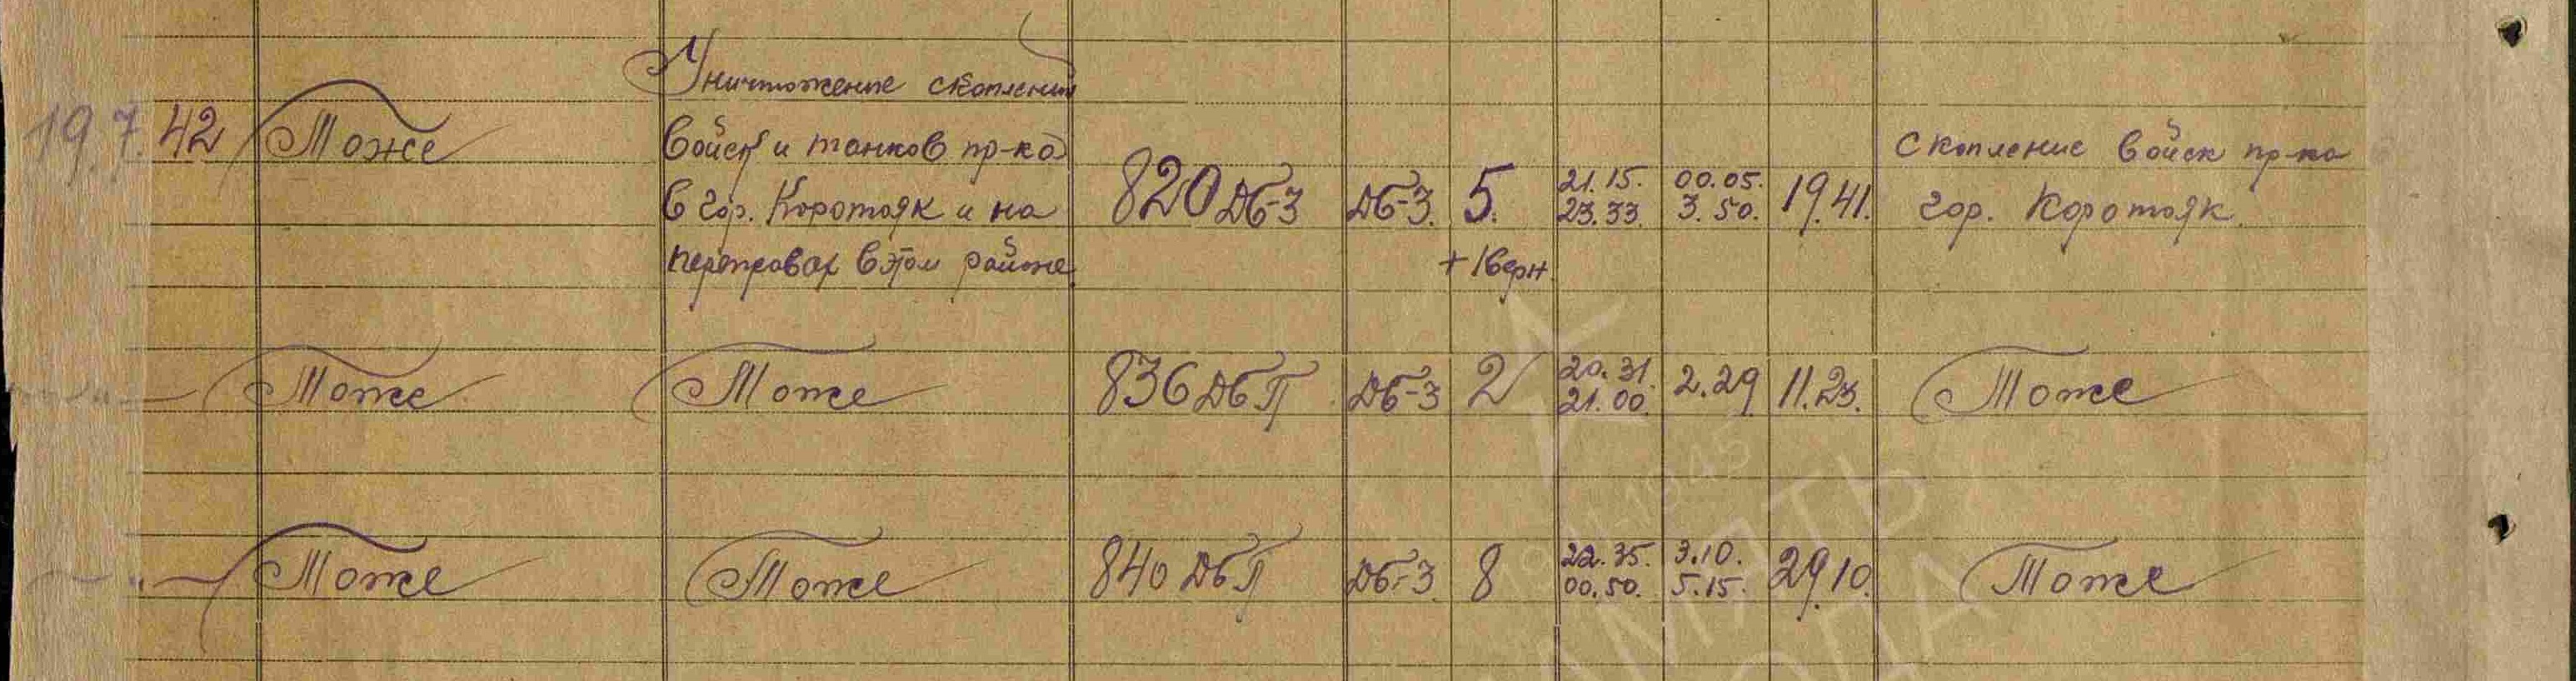 Уничтожение скоплений
19.7.42 Тоже войск и танков пр-ка Скопление войск пр-ка
в гор. Коротояк и на 820 ДБ-3 ДБ-3. 5. 21.15. 00.05. 19.41. гор. Коротояк.
23.33. 3.50.
переправах в этом районе + 1 верн.
Тоже Тоже 836 ДБП ДБ-3 2 20.31. 2.29 11.23. Тоже
21.00.
Тоже Тоже 840 ДБП ДБ-3 8 22.35. 3.10. 29.10. Тоже
00.50. 5.15.